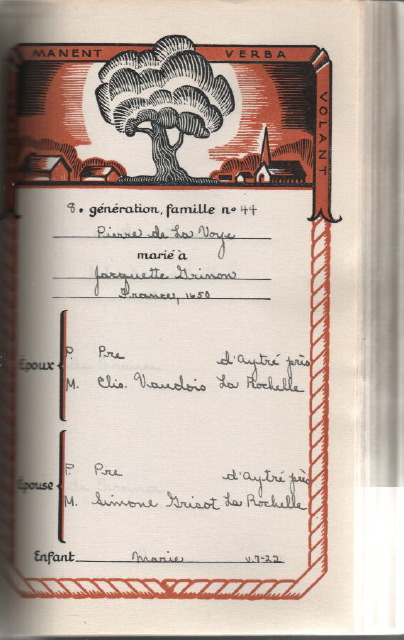 MANENT VERBA
VOLANT
8. génération, famille no 44
Pierre de La Voye
marié à
Jacquette Grinon
France, 1650
Époux
P. Pre d'Aytré près
M. Elis. Vaudois La Rochelle
Épouse
P. Pre d'Aytré près
M. Simone Grisot La Rochelle
Enfant Marie v.7-22